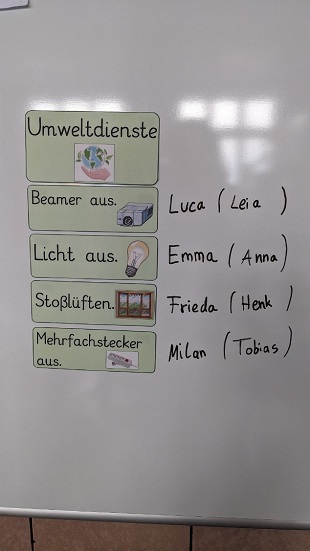 Umweltdienste
Beamer aus. Luca (Leia)
Licht aus. Emma (Anna)
Stoßlüften. Frieda (Henk)
Mehrfachstecker
aus. Milan (Tobias)